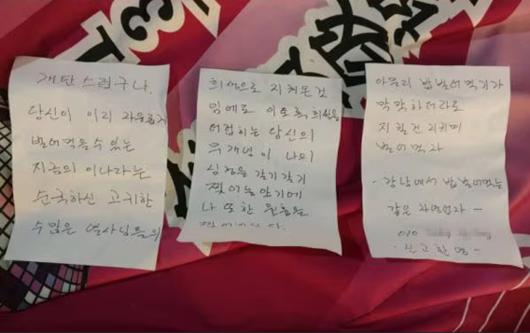 개탄스럽구나.
당신이 이리 자유롭게
벌어먹을수 있는
지금의 이나라는
순국하신 고귀한
수많은 열사님들의
희생으로 지켜온것
임에도 이토록, 희생을
더럽히는 당신의
무개념이 나의
심장을 갈기갈기
찢어놓았기에
나 또한
아무리 밥벌어먹기가
막막하더라도
지킬건 지키며
벌어먹자
- 강남에서 밥벌어먹는
같은 자영업자 -
010
- 신고환영 -